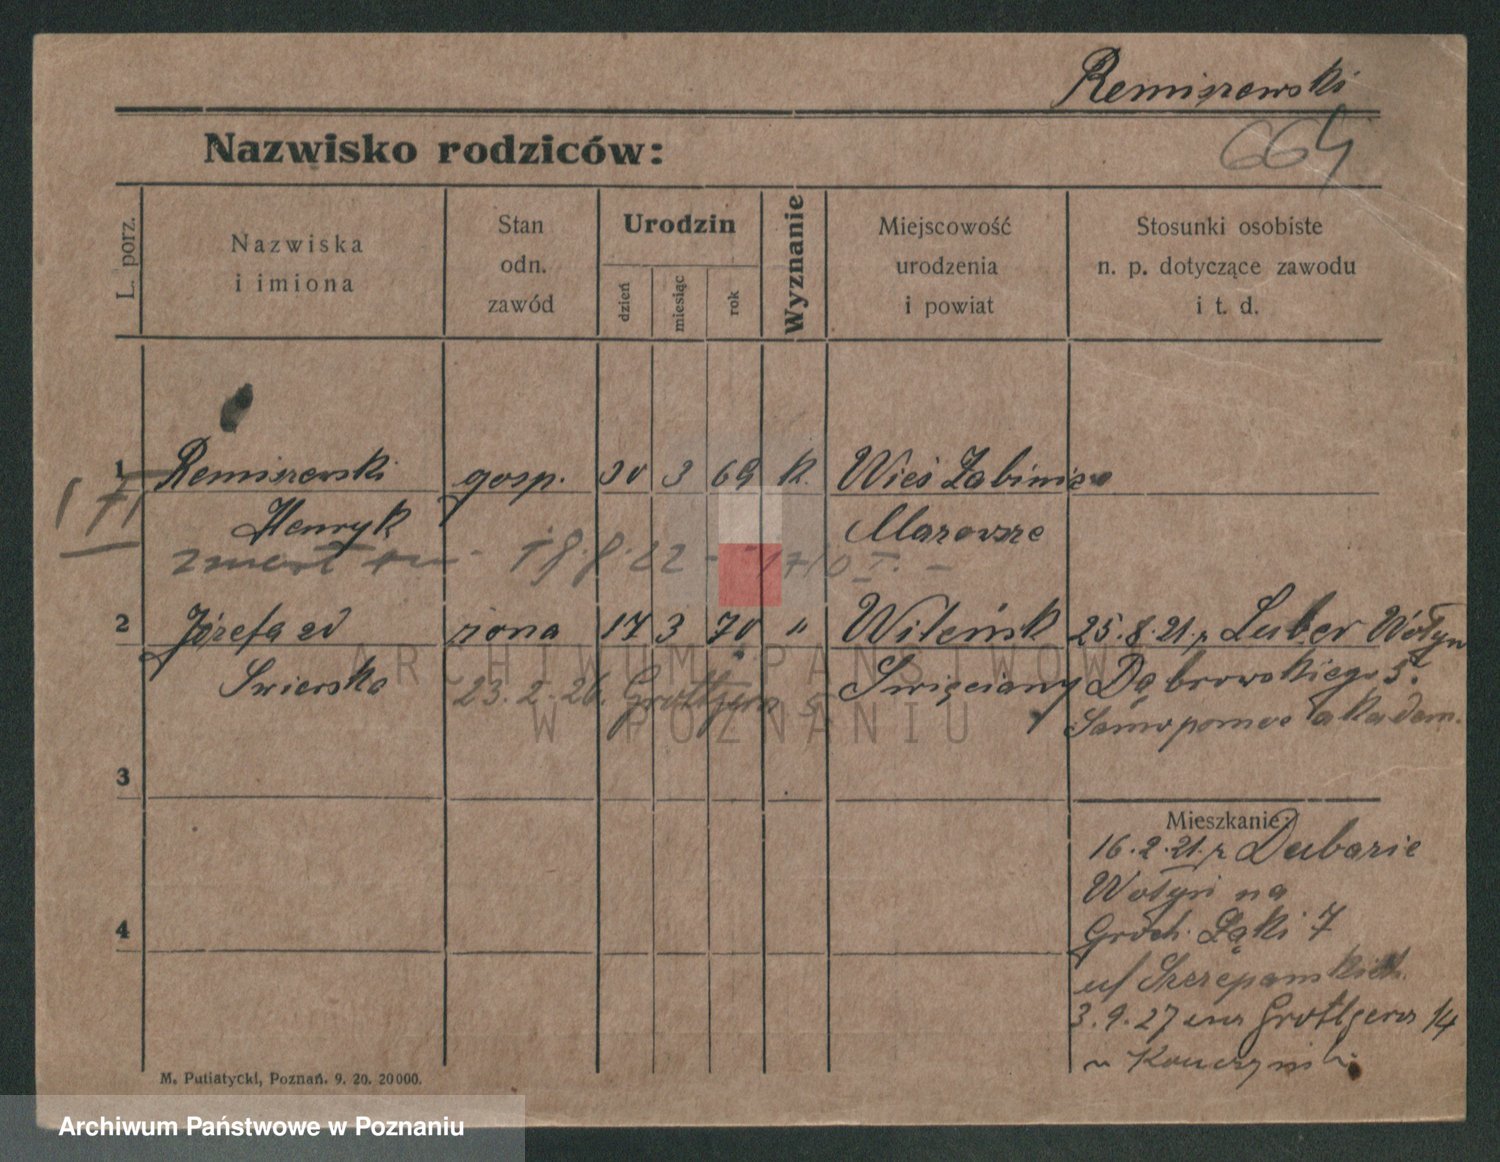 Remiszewski
664
Nazwisko rodziców:
L. porz.
Nazwiska
i imiona
Stan
odn.
zawód
Urodzin
dzień
miesiąc
rok
Wyznanie
Miejscowość
urodzenia
i powiat
Stosunki osobiste
n. p. dotyczące zawodu
i t. d.
1 Remiszewski gosp. 30 3 69 k. Wieś Żabiniec
171
Henryk Mazowsze
zmarł 18.8.22
2 Józefa zd żona 17 3 70 " Wileńsk 25.8.21. z Luber Wołyn
Swierska 23.2.26. Grottgera 5 Święciany Dąbrowskiego 5.
Samopomoc akadem.
ARCHIWUM PAŃSTWOWE
W POZNANIU
3
Mieszkanie:
16.2.21. z Dubazie
Wołyń na
Groch. Łąki 7
u/ Szczepańskich
4
3.9.27 na Grottgera 14
u
M. Putiatycki, Poznań. 9. 20. 20000.
Archiwum Państwowe w Poznaniu